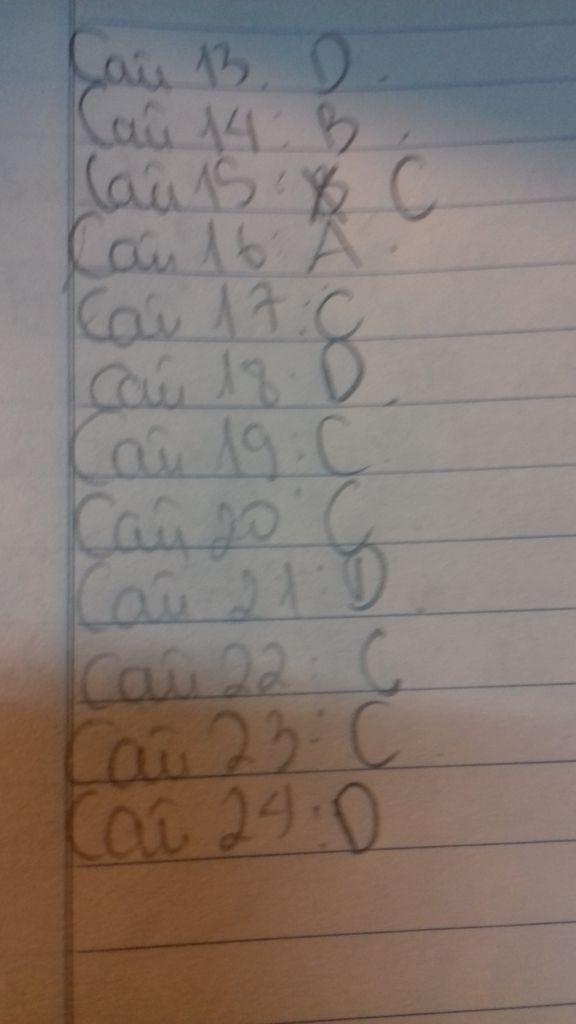 Câu 13. D.
Câu 14: B.
Câu 15: C
Câu 16: A.
Câu 17: C
Câu 18: D.
Câu 19: C
Câu 20: C
Câu 21: D
Câu 22: C
Câu 23: C
Câu 24: D